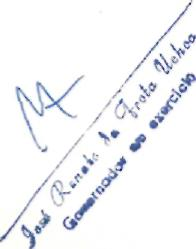 José Renato da Frota Uchoa
Governador em exercício